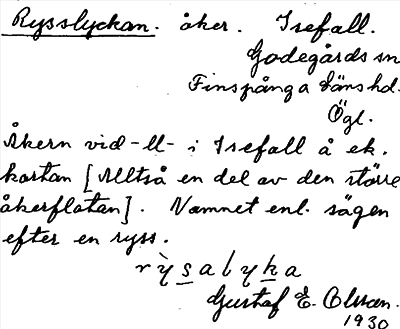 Rysslyckan. åker. Isefall.
Godegårds sn
Finspånga läns hd.
Ögl.
Åkern vid -ll- i Isefall å ek.
kartan [Alltså en del av den större
åkerflatan]. Namnet enl. sägen
efter en ryss.
rỳsalyka
Gustaf E. Olsson.
1930